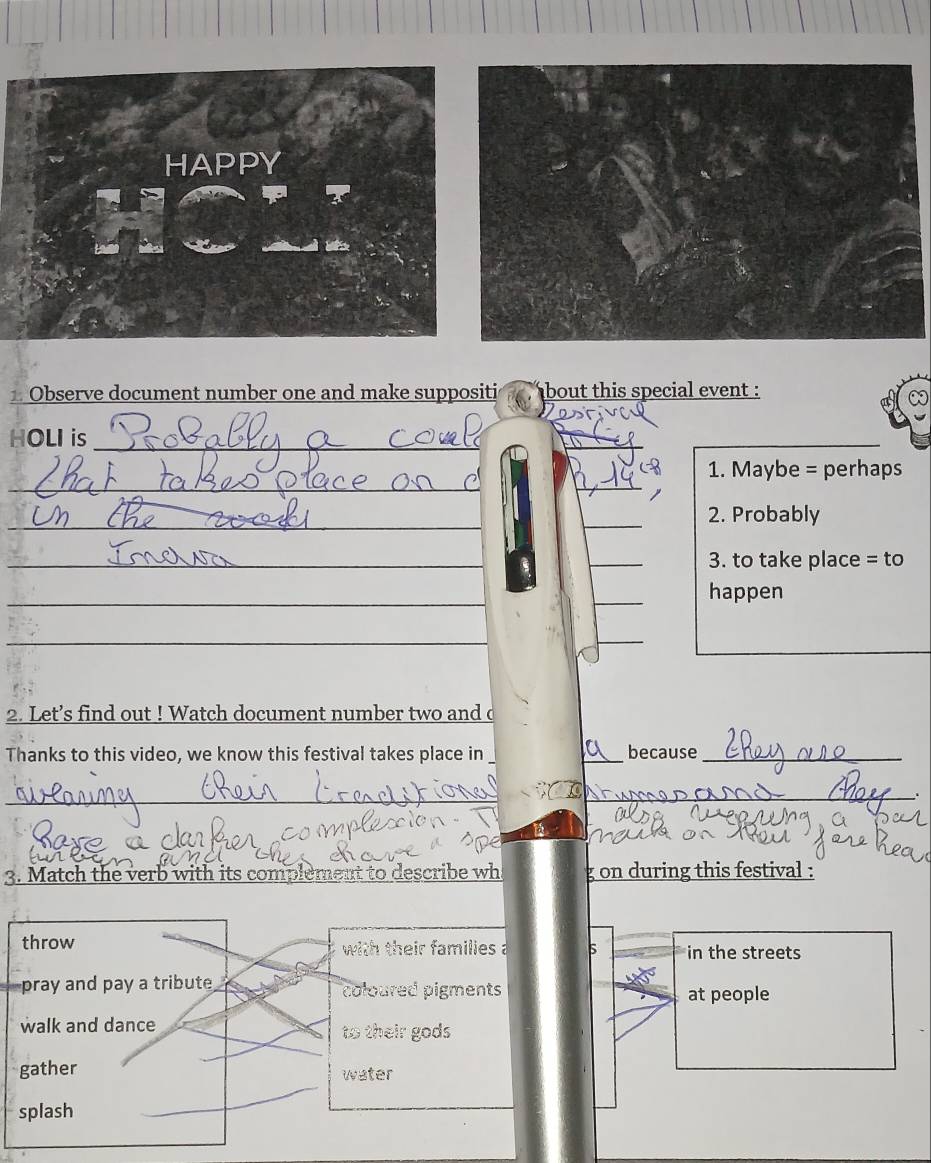 HAPPY
HOLI
1. Observe document number one and make suppositi bout this special event :
HOLI is Probably a festival
that takes place on , 14
in the
1. Maybe = perhaps
2. Probably
3. to take place = to
happen
2. Let's find out ! Watch document number two and
Thanks to this video, we know this festival takes place in a because they are
wearing their traditional and they
have a darker complexion. also wearing a
and they have a spe mark on their
3. Match the verb with its complement to describe wh g on during this festival :
throw
pray and pay a tribute
walk and dance
gather
splash
with their families a s
coloured pigments
to their gods
water
in the streets
at people